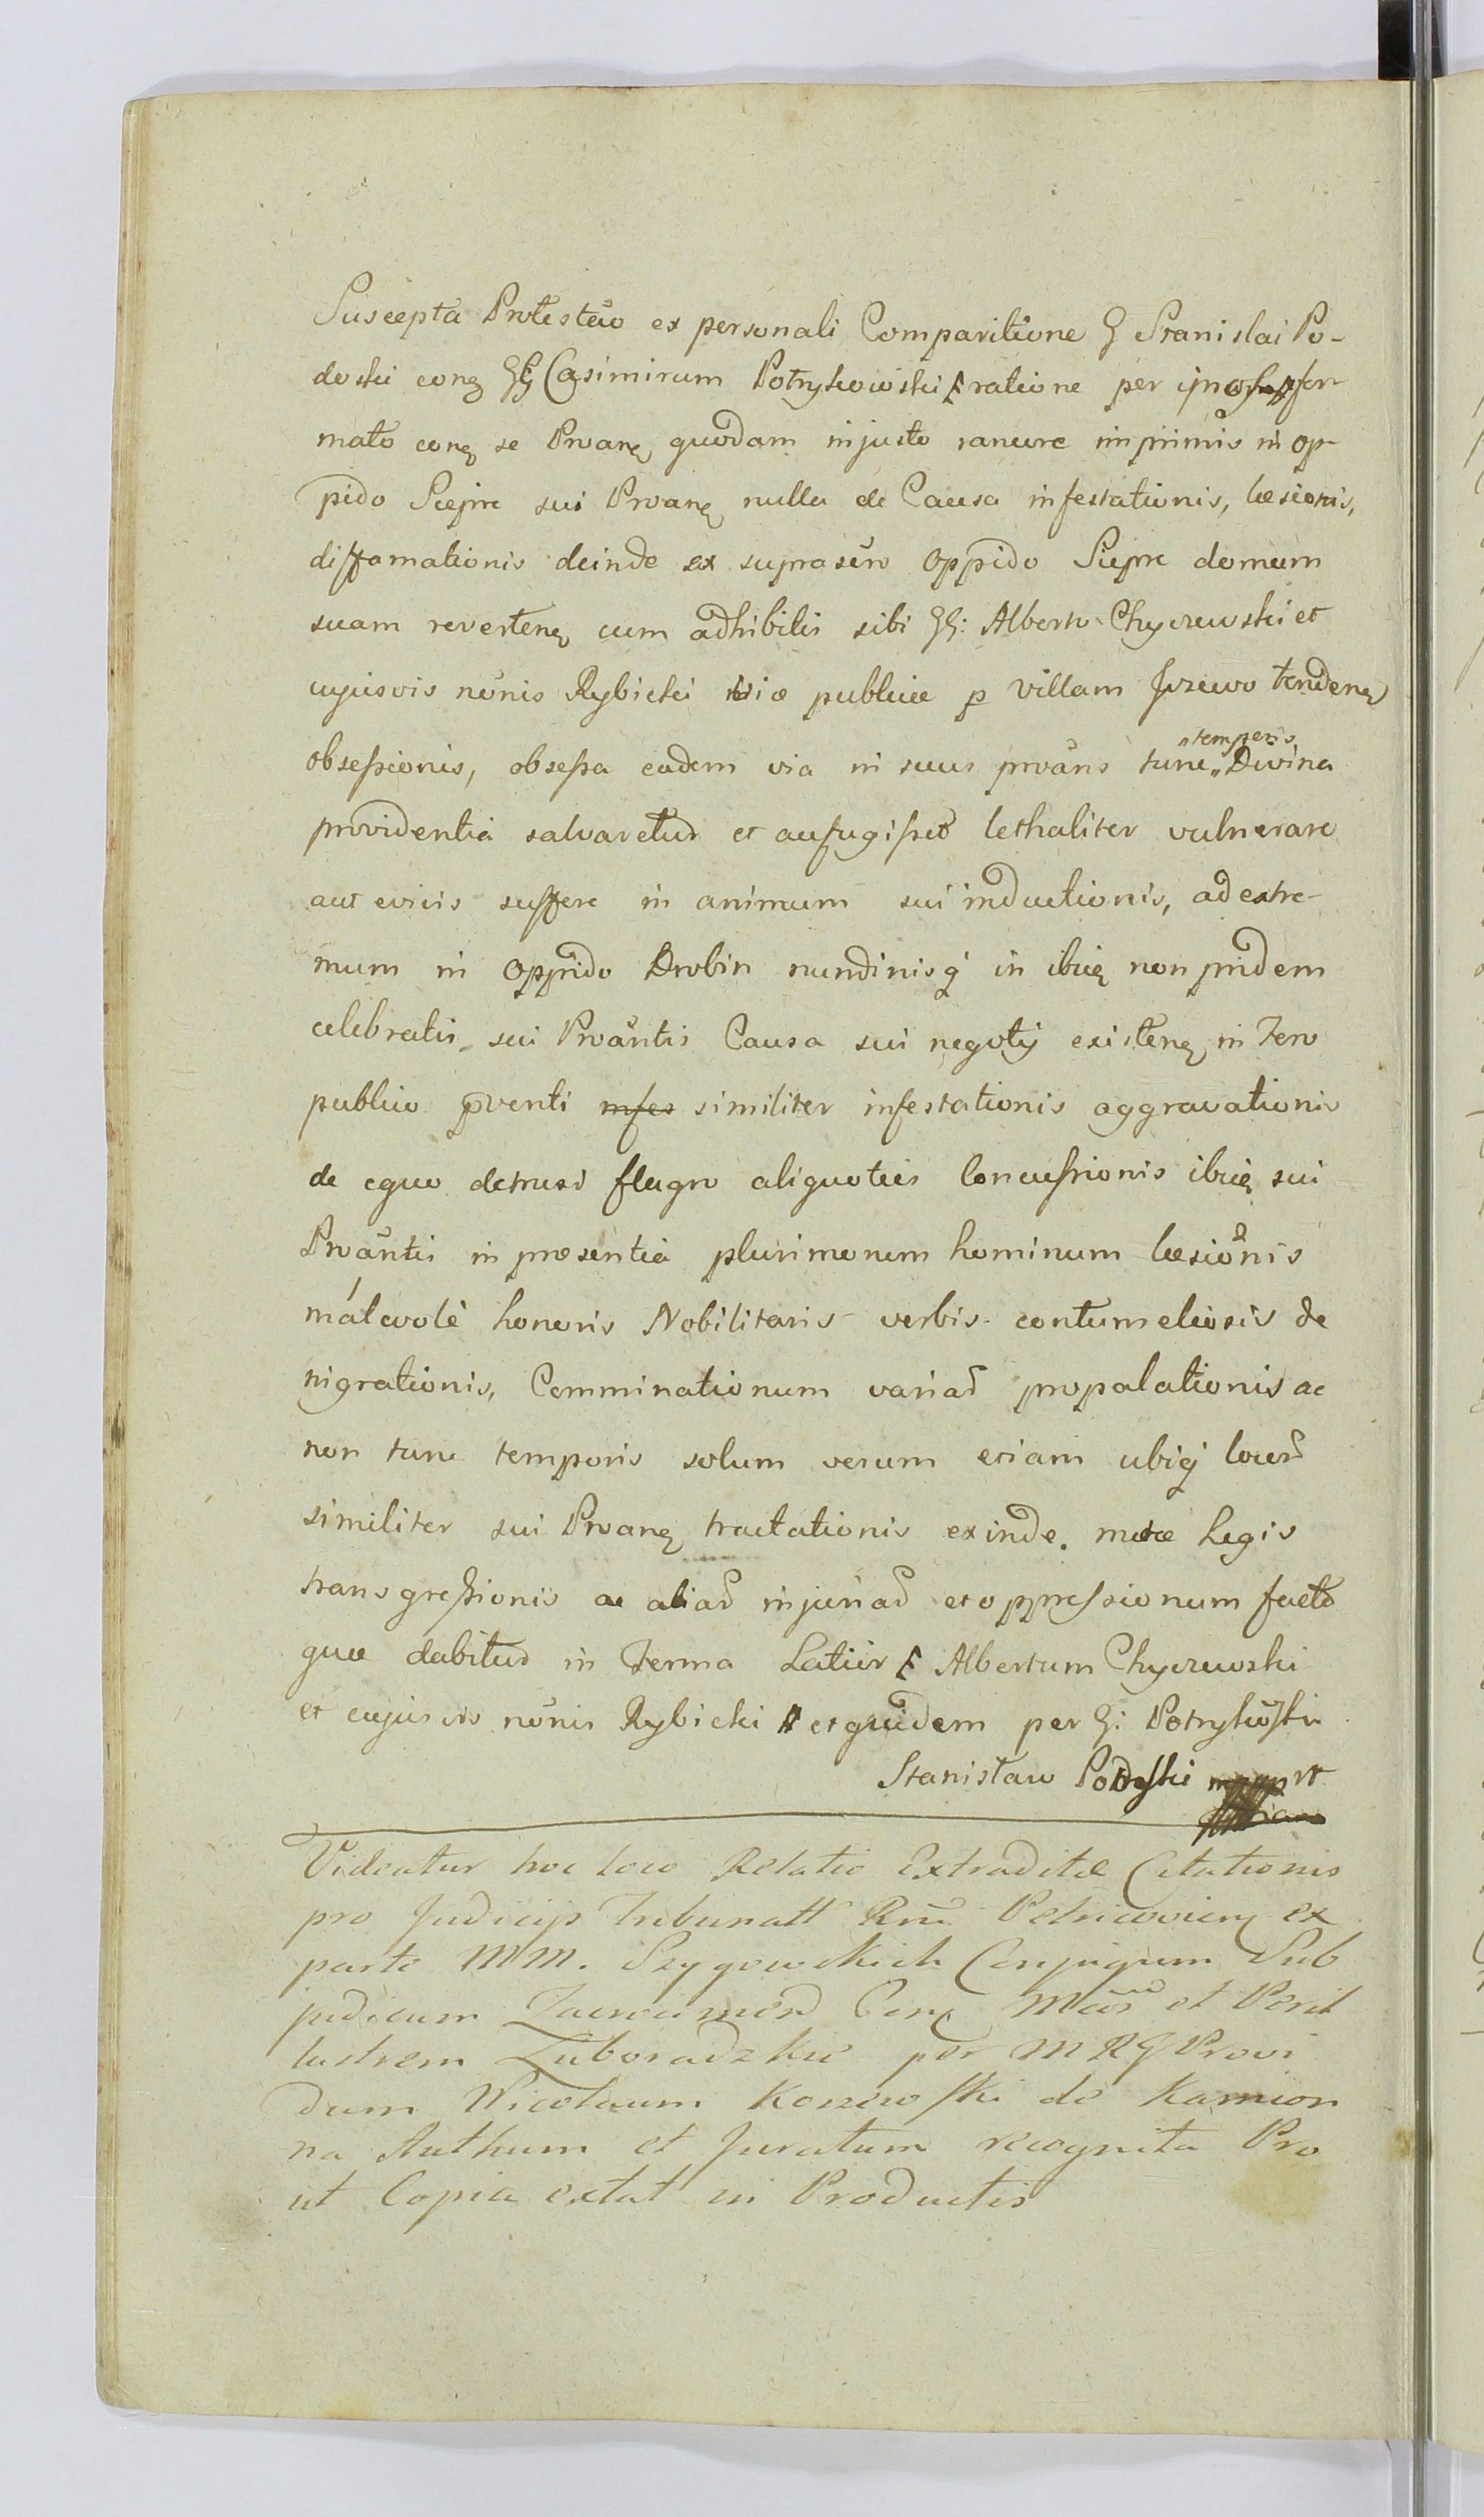 Suscepta Protestão ex personali Comparitione G Stanislai Po-
doski conẽ GG Casimirum Potrykowski ratione per
mato conẽ se Proanẽ quodam injusto rancore inprimis in op-
pido Sieprc sui Proanẽ nulla de Causa infestationis, læsionis,
diffamationis deinde ex suprascro oppido Sieprc domum
suam revertenẽ cum adhibitis sibi GG: Alberto Chyczewski et
cujusvis nõnis Rybicki viæ publicæ p villam Jvzewo tendenẽ
obsessionis, obsessa eadem via ni suus proãns tunc „temporis„ Divina
providentia salvaretur et aufugisset lethaliter vulnerare
aut e vivis suffere in animum sui inductionis, ad extre-
mum in oppido Drobin nundinisq in ibiẽ non pridem
celebratis sui Proãntis Causa sui negotij existenẽ in Foro
publico pventi infes similiter infestationis aggravationis
de equo detrusi flagro aliquoties Concussionis ibiẽ sui
Proãntis in præsentia plurimorum hominum læsionis
malevolè honoris Nobilitaris verbis contumeliosis de
nigrationis, Comminationum variar propalationis ac
non tunc temporis solum verum etiam ubiq locor
similiter sui Proanẽ tractationis exinde. Legis
transgressionis ac aliar injuriar et oppressionum facto
quæ dabitur in Forma Latiori Albertum Chyczewski
et cujusvis nõnis Rybicki et quidem per G: Potrykoski
Stanisław Podoski mpp
Videatur hoc loco Relatio Extraditæ Citationis
pro Judicijs Tribunatt Rni Petricovienẽ ex
parte MM. Szygowskich Conjugum Sub
judicum Zawcrimen Conẽ Mcos et Peril
lustrem Zuboradzkie per MRG Provi
dum Nicolaum Konzewski de Kamion
na Authum et Juratum recognita Pro
ut Copia extat in Productis